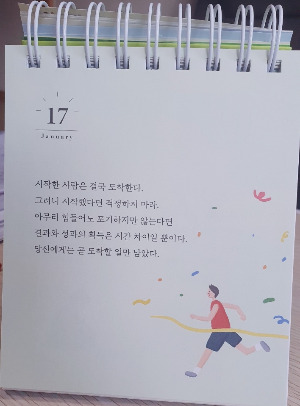 17
January
시작한 사람은 결국 도착한다.
그러니 시작했다면 걱정하지 마라.
아무리 힘들어도 포기하지만 않는다면
결과와 성과의 획득은 시간 차이일 뿐이다.
당신에게는 곧 도착할 일만 남았다.